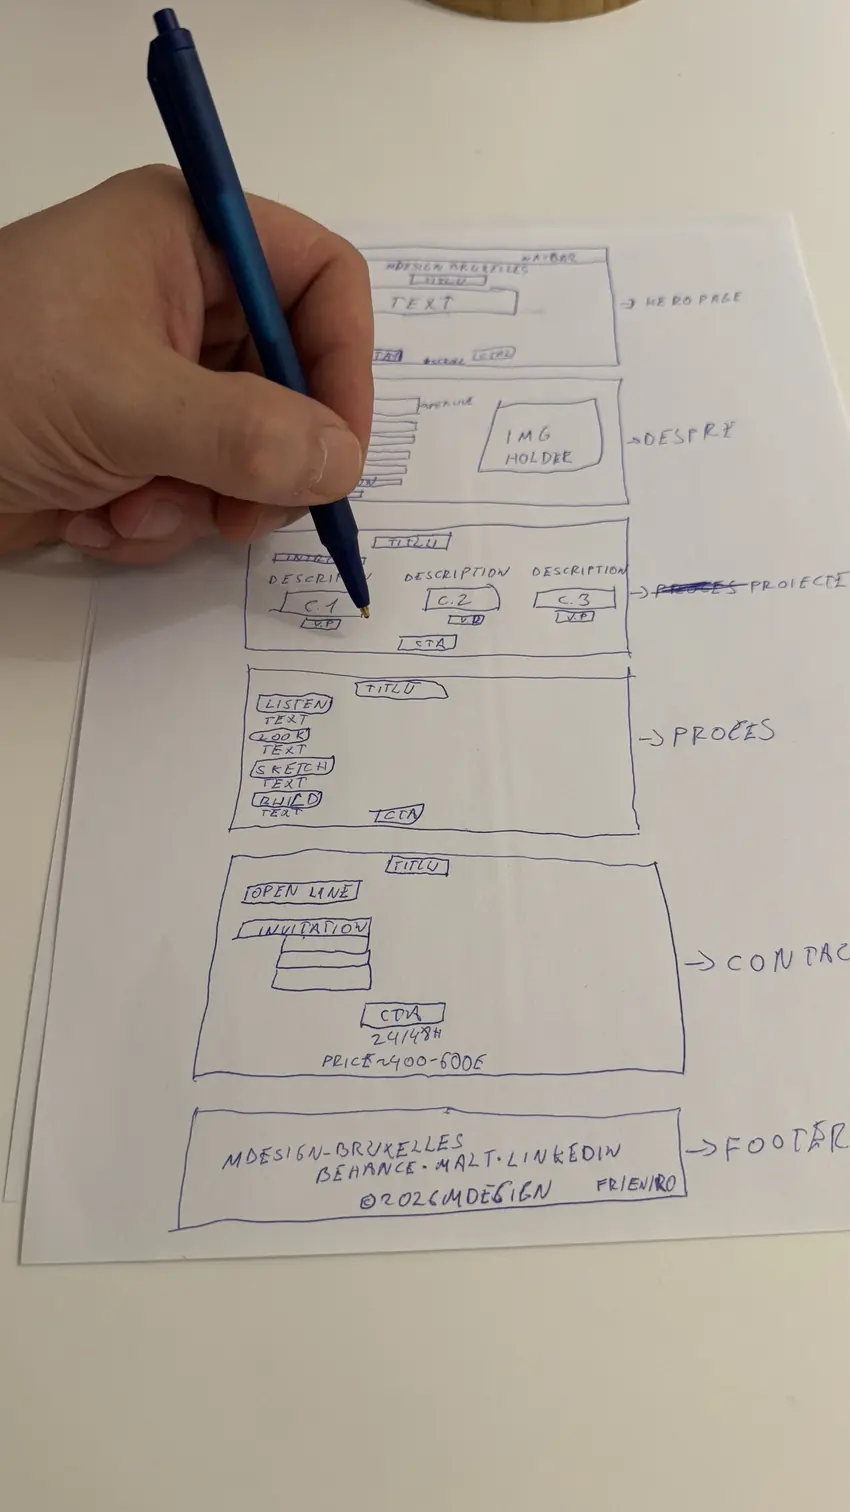 NAVBAR
MDESIGN BRUXELLES
TEXT
→ HERO PAGE
IMG
HOLDER
→ DESPRE
TITLU
DESCRIPTION DESCRIPTION
C.1 C.2 C.3
V.P V.P V.P
CTA
→ PROIECTE
TITLU
LISTEN
TEXT
LOOK
TEXT
SKETCH
TEXT
BUILD
TEXT
CTA
→ PROCES
TITLU
OPEN LINE
INVITATION
CTA
24/48H
PRICE~400-600€
→ CONTAC
MDESIGN-BRUXELLES
BEHANCE·MALT·LINKEDIN
©2026MDESIGN FR/EN/RO
→ FOOTER